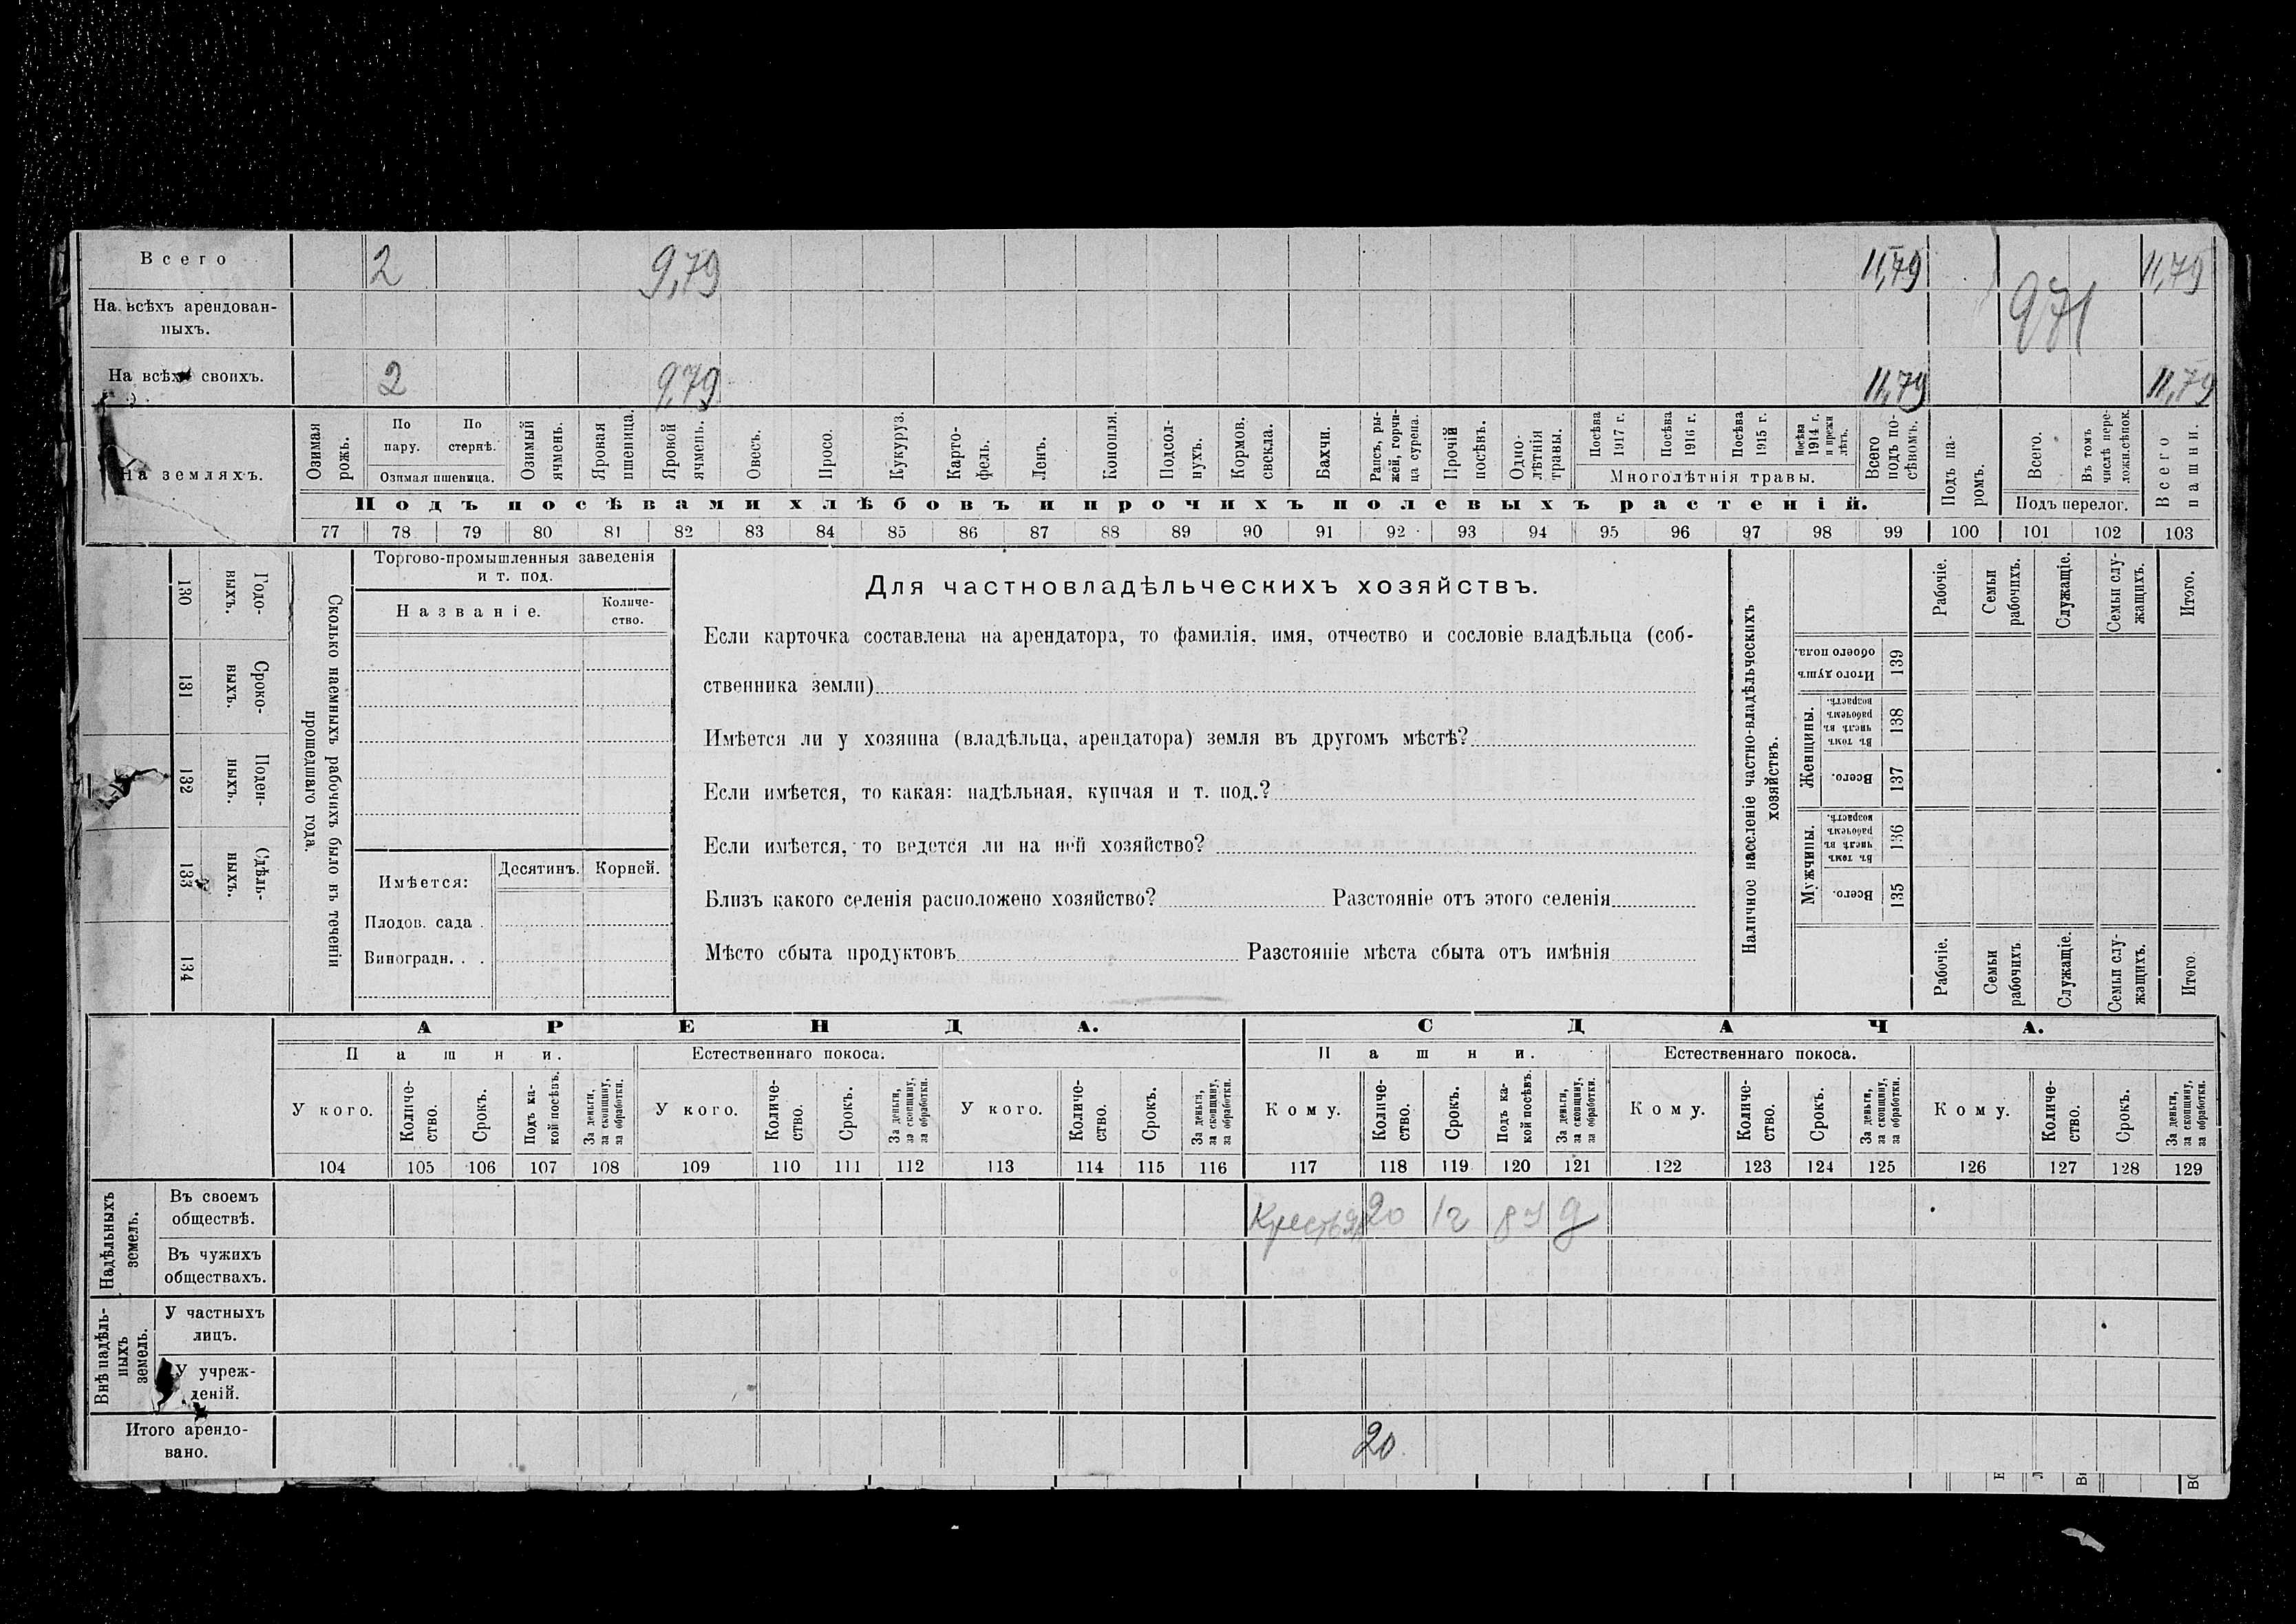 Всего 2 9,79 11,79 11,79
На всѣхъ арендован-
ныхъ. 971
На всѣхъ своихъ. 2 9,79 11,79 11,79
На земляхъ.
Озимая рожь.
По пару.
По стернѣ.
Озимая пшеница.
Озимый ячмень.
Яровая пшеница.
Яровой ячмень.
Овесъ.
Просо.
Кукуруз.
Карто-
фель.
Ленъ.
Конопля.
Подсол-
нухъ.
Кормов.
свекла.
Бахчи.
Рапсъ, ры-
жей, горчи-
ца сурепа.
Прочій посѣвъ.
Одно-
лѣтнія травы.
Посѣва 1917 г.
Посѣва 1916 г.
Посѣва 1915 г.
Посѣва 1914 г. и прежн лѣтъ.
Многолѣтнія травы.
Всего подъ по-
сѣвомъ.
Подъ па-
ромъ.
Всего.
Въ томъ числѣ пере-
ложн.сѣнок.
Подъ перелог.
Всего пашни.
Подъ посѣвами хлѣбовъ и прочихъ полевыхъ растеній.
77 78 79 80 81 82 83 84 85 86 87 88 89 90 91 92 93 94 95 96 97 98 99 100 101 102 103
Сколько наемныхъ рабочихъ было въ теченіи
прошедшаго года.
Годо-
выхъ.
130
Сроко-
выхъ.
131
Поден-
ныхъ.
132
Сдѣль-
ныхъ.
133
134
Торгово-промышленныя заведенія
и т. под.
Названіе.
Количе-
ство.
Имѣется:
Десятинъ.
Корней.
Плодов. сада .
Виноградн. . .
Для частновладѣльческихъ хозяйствъ.
Если карточка составлена на арендатора, то фамилія, имя, отчество и сословіе владѣльца (соб-
ственника земли)
Имѣется ли у хозяина (владѣльца, арендатора) земля въ другомъ мѣстѣ?
Если имѣется, то какая: надѣльная, купчая и т. под.?
Если имѣется, то ведется ли на ней хозяйство?
Близъ какого селенія расположено хозяйство? Разстояніе отъ этого селенія
Мѣсто сбыта продуктовъ Разстояніе мѣста сбыта отъ имѣнія
Наличное населеніе частно-владѣльческихъ
хозяйствъ.
Рабочіе.
Семьи рабочихъ.
Служащіе.
Семьи слу-
жащихъ.
Итого.
Итого душъ обоего пола.
139
Женщины.
Въ томъ числѣ въ рабочемъ возрастѣ.
138
Всего.
137
Мужчины.
Въ томъ числѣ въ рабочемъ возрастѣ.
136
Всего.
135
Рабочіе.
Семьи рабочихъ
Служащіе.
Семьи слу-
жащихъ.
Итого.
АРЕНДА. СДАЧА.
Пашни. Естественнаго покоса. Пашни. Естественнаго покоса.
У кого.
Количе-
ство.
Срокъ.
Подъ ка-
кой посѣвъ.
За деньги,
за скопщину,
за обработки.
У кого.
Количе-
ство.
Срокъ.
За деньги,
за скопщину,
за обработки.
У кого.
Количе-
ство.
Срокъ.
За деньги,
за скопщину,
за обработки.
Кому.
Количе-
ство.
Срокъ.
Подъ ка-
кой посѣвъ.
За деньги,
за скопщину,
за обработки.
Кому.
Количе-
ство.
Срокъ.
За деньги,
за скопщину,
за обработки.
Кому.
Количе-
ство.
Срокъ.
За деньги,
за скопщину,
за обработки.
104 105 106 107 108 109 110 111 112 113 114 115 116 117 118 119 120 121 122 123 124 125 126 127 128 129
Надѣльныхъ
земель.
Въ своемъ
обществѣ. 20 1г д
Въ чужихъ
обществахъ.
Внѣ надѣль-
ныхъ
земель.
У частныхъ
лицъ.
У учреж-
деній.
Итого арендо-
вано. 20